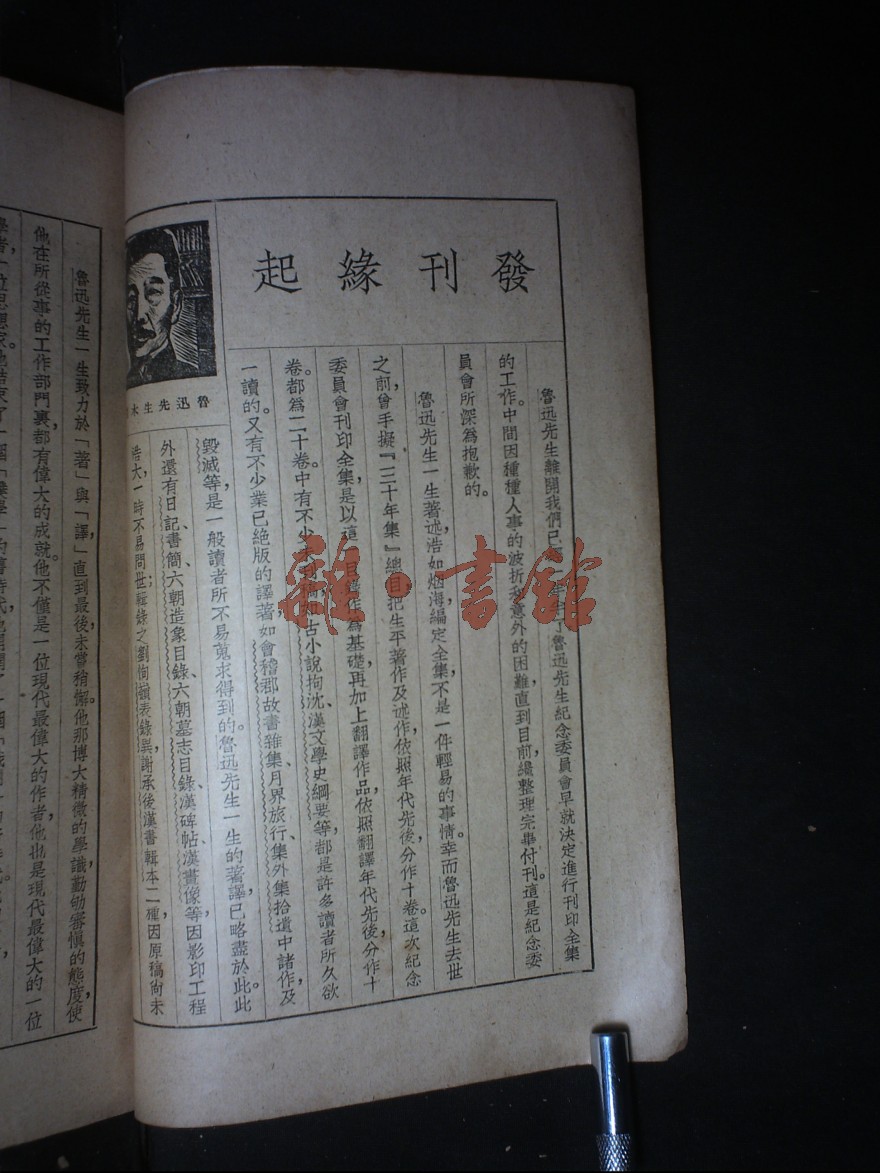 發刊緣起
魯迅先生離開我們已 魯迅先生紀念委員會早就決定進行刊印全集
的工作。中間因種種人事的波折和意外的困難,直到目前纔整理完畢付刊。這是紀念委
員會所深為抱歉的。
魯迅先生一生著述浩如烟海,編定全集,不是一件輕易的事情。幸而魯迅先生去世
之前,曾手擬『三十年集』總目,把生平著作及述作,依照年代先後,分作十卷。這次紀念
委員會刊印全集,是以這 目錄作為基礎,再加上翻譯作品,依照翻譯年代先後,分作十
卷。都為二十卷。中有不少 古小說拘沈、漢文學史綱要等,都是許多讀者所久欲
一讀的。又有不少業已絕版的譯著,如會稽郡故書雜集、月界旅行、集外集拾遺中諸作,及
毀滅等,是一般讀者所不易蒐求得到的。魯迅先生一生的著譯已略盡於此。此
外還有日記、書簡、六朝造象目錄、六朝墓志目錄、漢碑帖、漢畫像等,因影印工程
浩大,一時不易問世;輯錄之劉恂嶺表錄異、謝承後漢書輯本二種,因原稿尙未
魯迅先生木
魯迅先生一生致力於「著」與「譯」,直到最後,未嘗稍懈。他那博大精微的學識,勤劬審慎的態度,使
他在所從事的工作部門裏都有偉大的成就。他不僅是一位現代最偉大的作者,他也是現代最偉大的一位
雜·書館